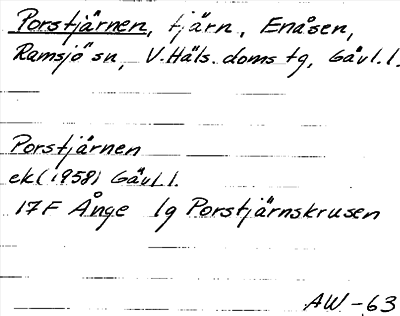 Porstjärnen, tjärn, Enåsen,
Ramsjö sn, V. Häls. doms tg, Gävl. l.
Porstjärnen
ek (1958) Gävl. l.
17F Ånge lg Porstjärnskrusen
AW-63